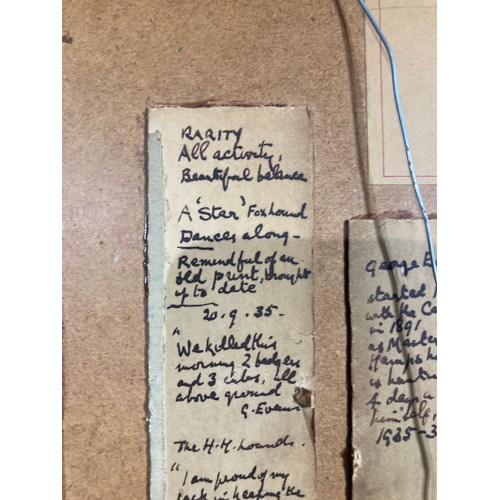 RARITY
All activity,
Beautiful balance
A 'Star' Foxhound
Dances along -
Remindful of an
old print, brought
up to date
20.9.35 -
"
We killed this
morning 2 badgers
and 3 cubs, all
above ground"
G. Evans
The H.H. hounds.
"I am proud of my
pack in keeping the
George E
started
with the Ca
in 1891
as Master
Hampshi
is hunting
4 days a
himself,
1935-3